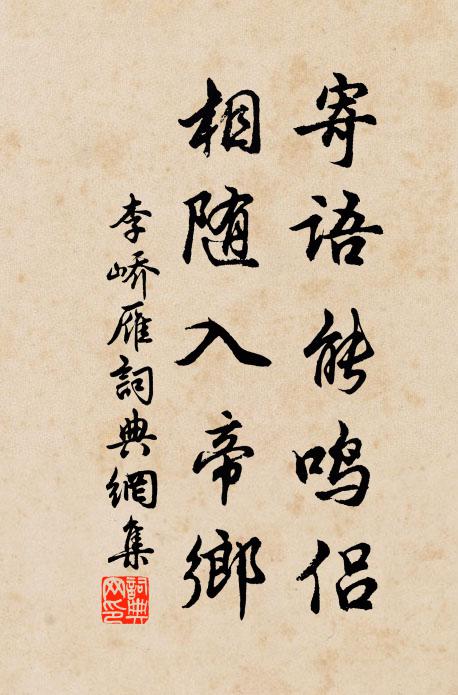 寄语能鸣侣
相随入帝鄉
李峤雁詞典網集
詞典
网印